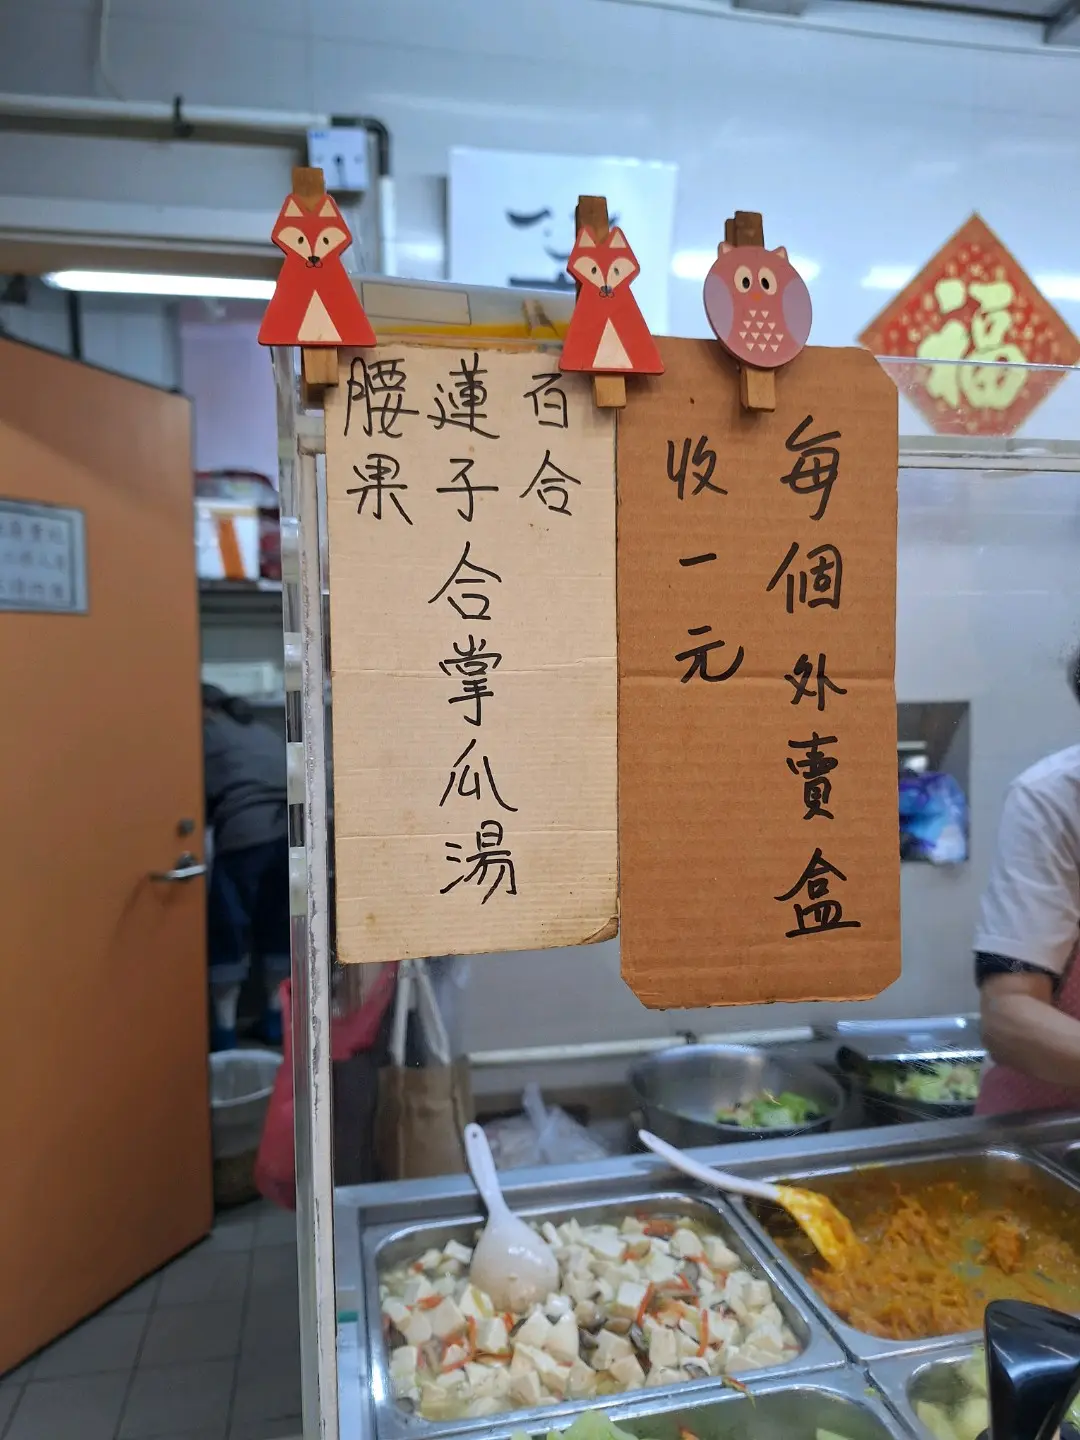 福
每個外賣盒
收一元
百合
蓮子合掌瓜湯
腰果